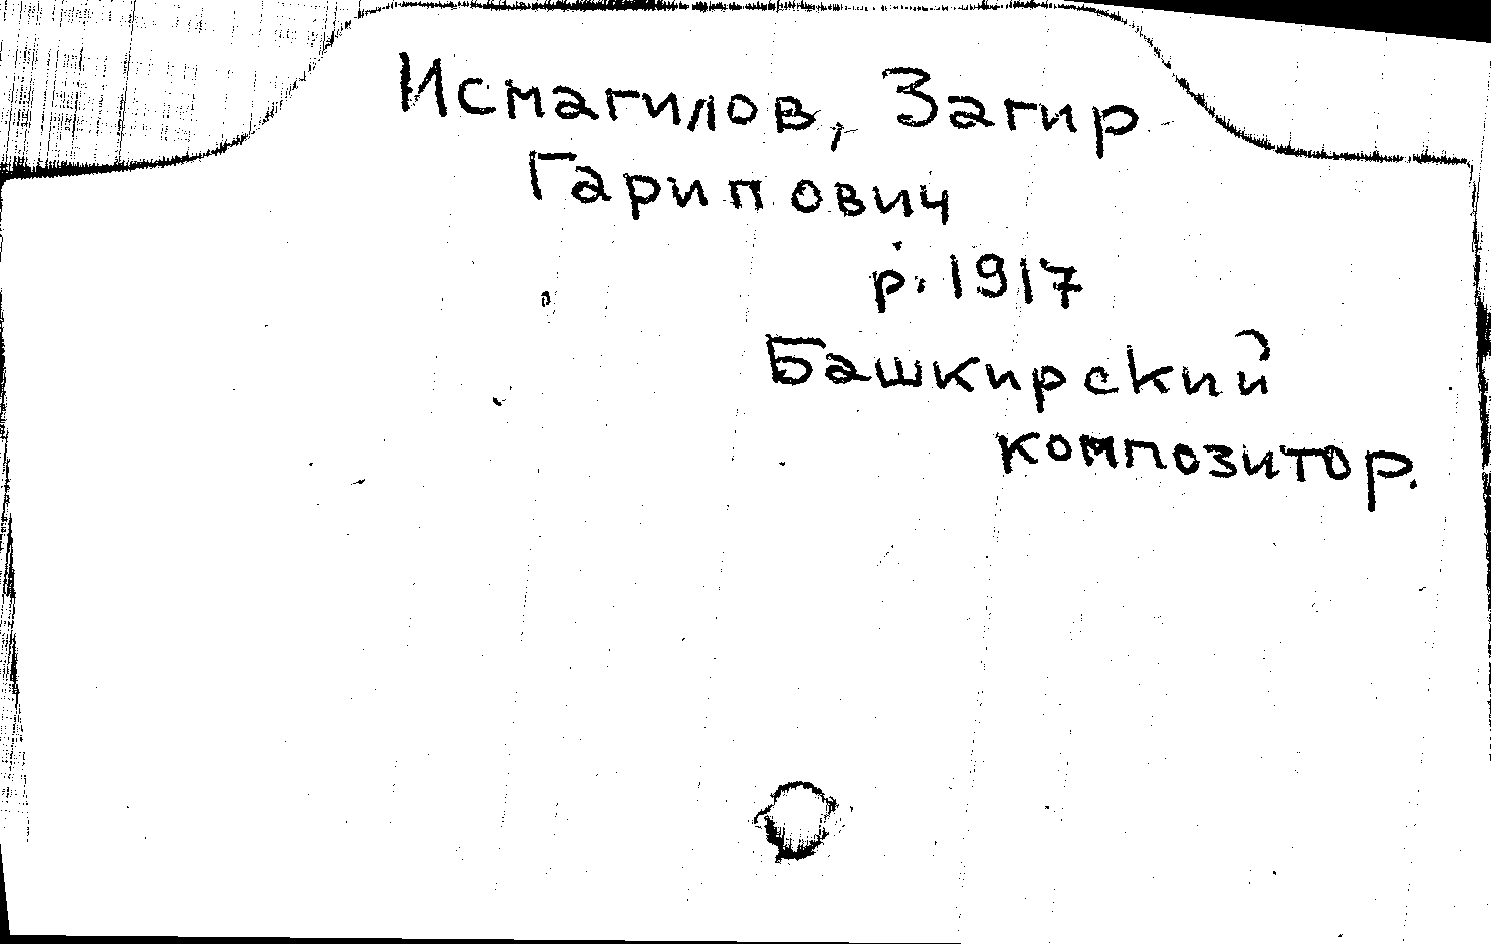 Исмагилов, Загир
Гарипович
р. 1917
Башкирский
композитор.